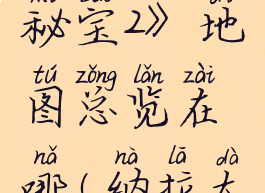 秘宝2》地
tú zǒng lǎn zài
图总览在
nǎ nà lā dà
哪(纳拉大